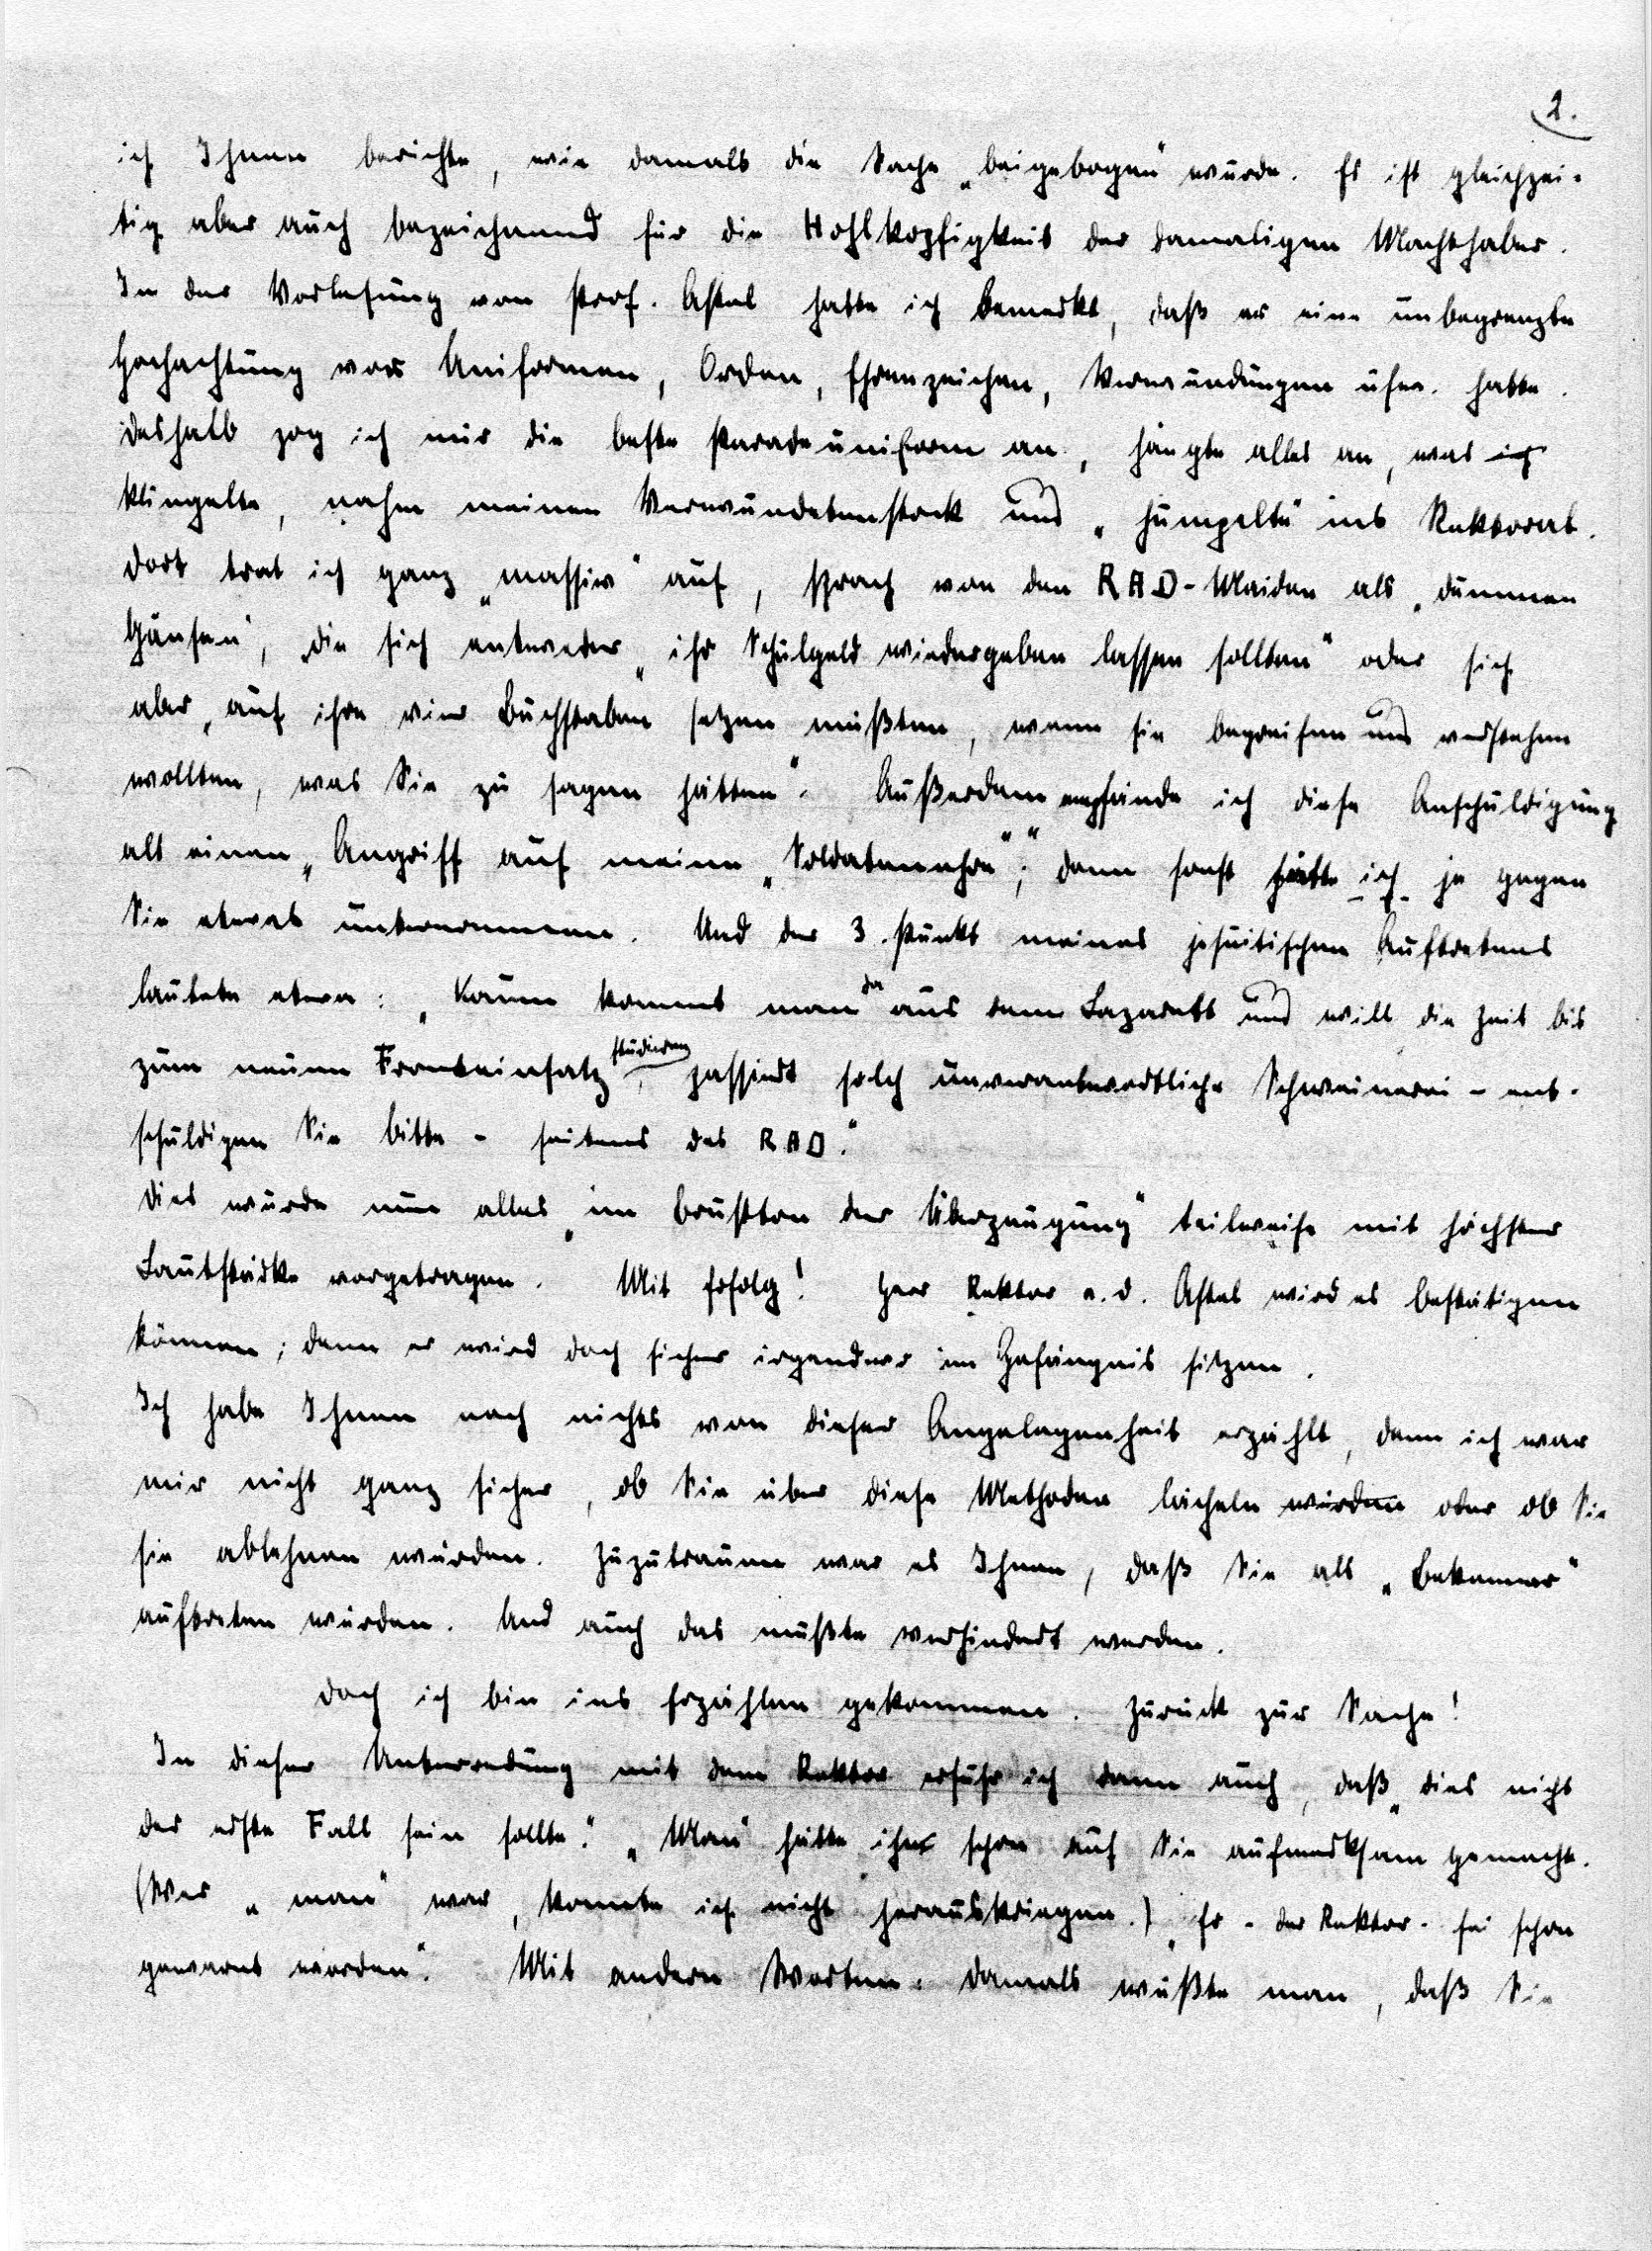 2.
ich Ihnen berichte, wie damals die Sache „beigebogen“ wurde. Es ist gleichzei-
tig aber auch bezeichnend für die Hohlköpfigkeit der damaligen Machthaber.
In der Vorlesung von Prof. Astel hatte ich bemerkt, daß er eine unbegrenzte
Hochachtung vor Uniformen, Orden, Ehrenzeichen, Verwundungen usw. hatte.
Deshalb zog ich mir die beste Paradeuniform an, hängte alles an, was ich
klingelte, nahm meinen Verwundetenstock und „humpelte“ ins Rektorat.
Dort trat ich ganz „massiv“ auf, sprach von den RAD-Maiden als „dummen
Gänsen“, die sich entweder „ihr Schulgeld wiedergeben lassen sollten“ oder sich
aber „auf ihre vier Buchstaben setzen müßten, wenn sie begreifen und verstehen
wollten, was Sie zu sagen hätten“. Außerdem empfände ich diese Anschuldigung
als einen „Angriff auf meine „Soldatenehre““; denn sonst hätte ich ja gegen
Sie etwas unternommen. Und der 3. Punkt meines jesuitischen Auftretens
lautete etwa: „Kaum kommt man da aus dem Lazarett und will die Zeit bis
zum neuen Fronteinsatz studieren, passiert solch unverantwortliche Schweinerei - ent-
schuldigen Sie bitte - seitens des RAD.“
Dies wurde nun alles „im Brustton der Überzeugung“ teilweise mit höchster
Lautstärke vorgetragen. Mit Erfolg! Herr Rektor a.d. Astel wird es bestätigen
können; denn er wird doch sicher irgendwo im Gefängnis sitzen.
Ich habe Ihnen noch nichts von dieser Angelegenheit erzählt, denn ich war
mir nicht ganz sicher, ob Sie über diese Methoden lächeln würden oder ob Sie
sie ablehnen würden. Zuzutrauen war es Ihnen, daß Sie als „Bekenner“
auftreten würden. Und auch das mußte verhindert werden.
Doch ich bin ins Erzählen gekommen. Zurück zur Sache!
In dieser Unterredung mit dem Rektor erfuhr ich dann auch, daß „dies nicht
der erste Fall sein sollte.“ „Man“ hätte ihn schon auf Sie aufmerksam gemacht.
(Wer „man“ war, konnte ich nicht herauskriegen.) „Er - der Rektor - sei schon
gewarnt worden“. Mit andern Worten: Damals wußte man, daß Sie